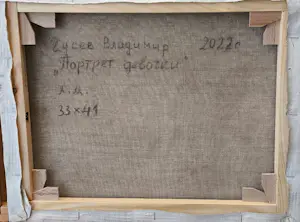 Гусев Владимир 2022г
"Портрет девочки"
х.м.
33×41